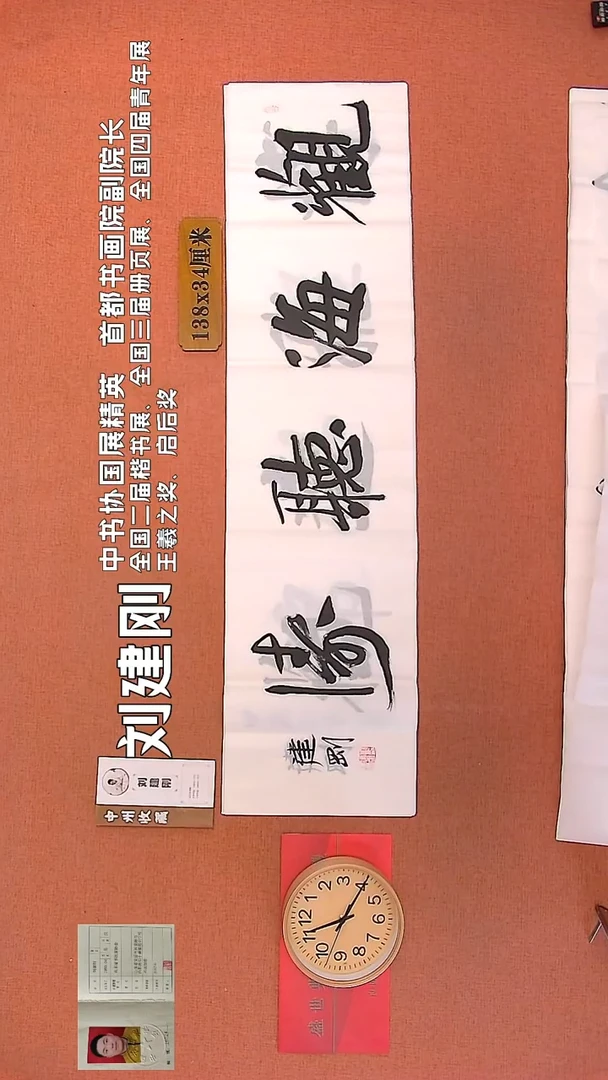 刘建刚
中书协国展精英 首都书画院副院长
全国二届楷书展、全国三届册页展、全国四届青年展
王羲之奖、启后奖
138x34厘米
觀海聽濤
建剛
刘建刚
中州收藏
盛世
12 1 2 3 4 5 6 7 8 9 10 11